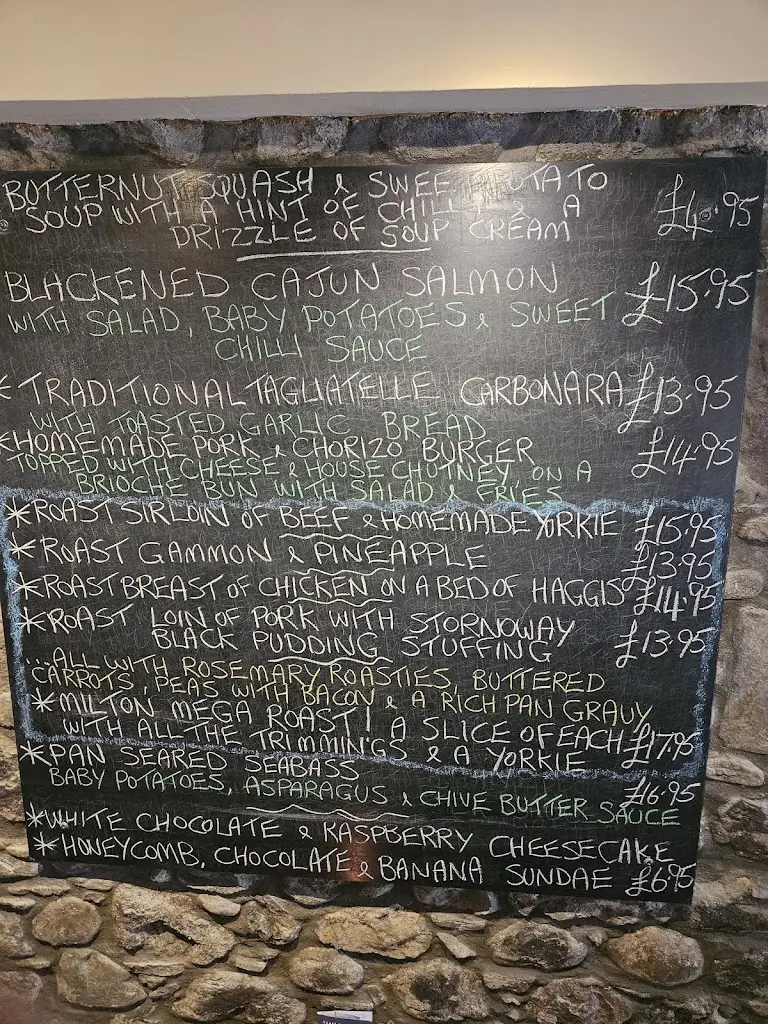 BUTTERNUT SQUASH & SWEET POTATO
SOUP WITH A HINT OF CHILLI & A £4.95
DRIZZLE OF SOUP CREAM
BLACKENED CAJUN SALMON £15.95
WITH SALAD, BABY POTATOES & SWEET
CHILLI SAUCE
* TRADITIONAL TAGLIATELLE CARBONARA £13.95
WITH TOASTED GARLIC BREAD
* HOMEMADE PORK & CHORIZO BURGER £14.95
TOPPED WITH CHEESE & HOUSE CHUTNEY, ON A
BRIOCHE BUN WITH SALAD & FRIES
* ROAST SIRLOIN OF BEEF & HOMEMADE YORKIE £15.95
* ROAST GAMMON & PINEAPPLE £13.95
* ROAST BREAST OF CHICKEN ON A BED OF HAGGIS £14.95
* ROAST LOIN OF PORK WITH STORNOWAY
BLACK PUDDING STUFFING £13.95
...ALL WITH ROSEMARY ROASTIES, BUTTERED
CARROTS, PEAS WITH BACON & A RICH PAN GRAVY
* MILTON MEGA ROAST! A SLICE OF EACH £17.95
WITH ALL THE TRIMMINGS & A YORKIE
* PAN SEARED SEABASS £16.95
BABY POTATOES, ASPARAGUS & CHIVE BUTTER SAUCE
* WHITE CHOCOLATE & RASPBERRY CHEESECAKE
* HONEYCOMB, CHOCOLATE & BANANA SUNDAE £6.95